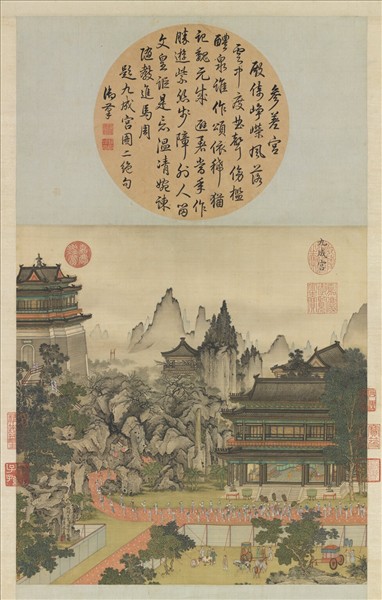 參差宮
殿倚崢嶸風落
雲中度曲聲傍檻
醴泉誰作頌依稀猶
記魏元成 避暑當年作
勝遊紫絲步障人留
文皇詎是忘溫凊婉諫
隨教進馬周
題九成宮圖二絕句
御筆
九成宮